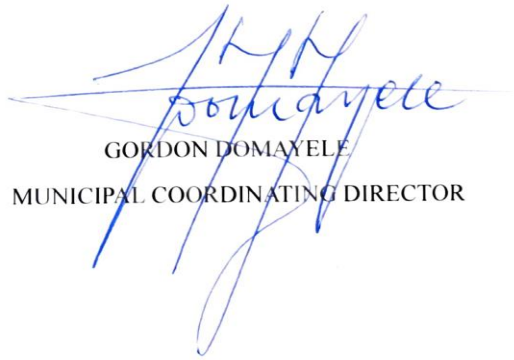 Domayele
GORDON DOMAYELE
MUNICIPAL COORDINATING DIRECTOR